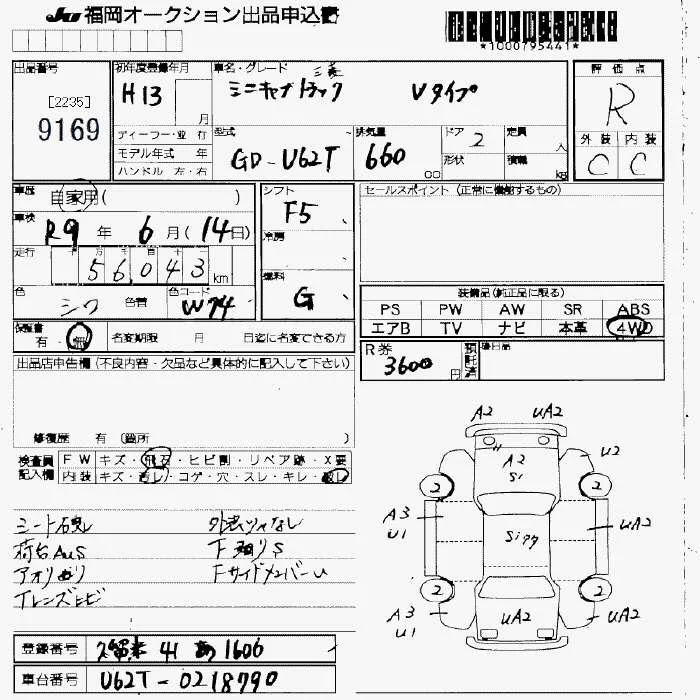 JU 福岡オークション出品申込書
*1000795441*
出品番号
[2235]
9169
初年度登録年月
H13 月
車名・グレード
三菱
ミニキャブトラック Vタイプ
評価点
R
外装 内装
C C
ディーラー・並行
モデル年式 年
ハンドル 左・右
型式
GD-U62T
排気量
660
cc
ドア 2
形状
定員 人
積載 kg
車歴
自家用( )
車検
R9 年 6 月(14日)
走行
56043 km
色
シロ
色替
色コード
W74
シフト
F5
冷房
燃料
G
セールスポイント (正常に機能するもの)
装備品(純正品に限る)
PS PW AW SR ABS
エアB TV ナビ 本革 4WD
保証書
有・無
名変期限 月 日迄に名変できる方
R券
3600円
預託済
後日品
出品店申告欄(不良内容・欠品など具体的に記入して下さい)
修復歴 有 (箇所 )
検査員
記入欄
FW キズ・飛石・ヒビ割・リペア跡・X要
内装 キズ・汚レ・コゲ・穴・スレ・キレ・破レ
荷台AUS
アオリ曲り
Tレンズヒビ
F廻りS
FサイドメンバーU
A2 UA2
A2
S1
U2
2 2
A3
U1
UA2
2 2
A3
U1
UA2
UA2
登録番号 久留米 41 あ1606
車台番号 U62T-0218790